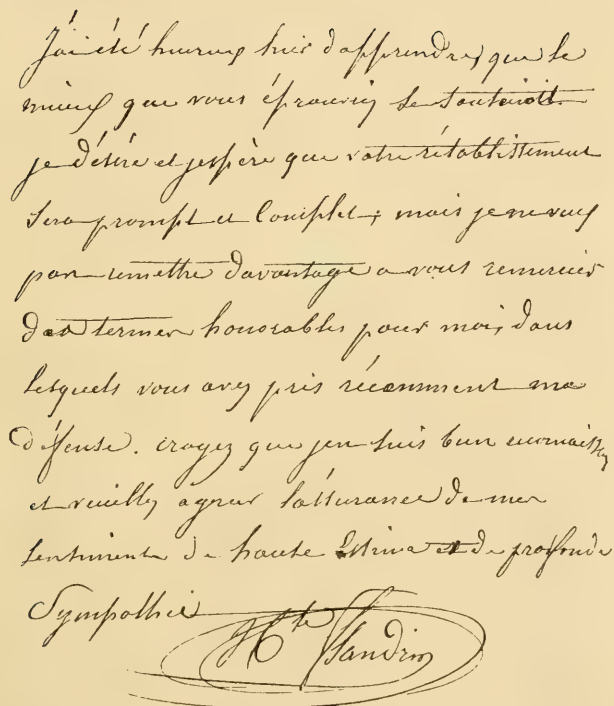 J'ai été heureux hier d'apprendre, que le
mieux que vous éprouviez se soutenoit
je désire et j'espère que votre rétablissement
sera prompt et complet; mais je ne veux
pas remettre davantage a vous remercier
des termes honorables pour moi, dans
lesquels vous avez pris récemment ma
défense. croyez que j'en suis bien reconnaissant
et veuillez agréer l'assurance de mes
sentiments de haute estime et de profonde
Sympathie
Hte Flandrin